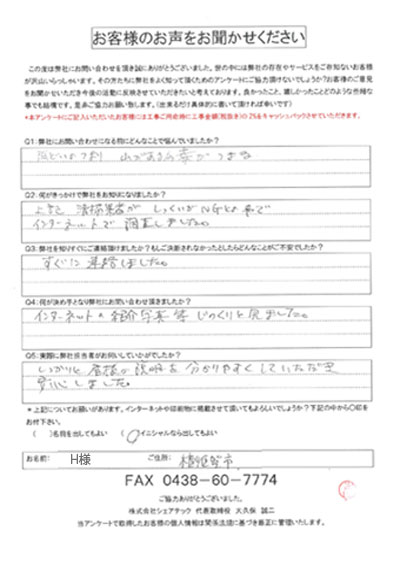 お客様のお声をお聞かせください
この度は弊社にお問い合わせを頂き誠にありがとうございました。世の中には弊社の存在やサービスをご存知ないお客様
が沢山いらっしゃいます。その方たちに弊社をよく知って頂くためのアンケートにご協力頂けないでしょうか?お客様のご意見
をお聞かせいただき今後の活動に反映させていただきたいと考えております。良かったこと、嬉しかったことどのような些細な
事でも結構です。是非ご協力お願い致します。(出来るだけ具体的に書いて頂ければ幸いです)
*本アンケートにご記入いただいたお客様には工事ご用命時に工事金額(税抜き)の2%をキャッシュバックさせていただきます。
Q1:弊社にお問い合わせになる前にどんなことで悩んでいましたか?
Q2:何がきっかけで弊社をお知りになりましたか?
インターネットで
Q3:弊社を知りすぐにご連絡頂けましたか?もしご決断されなかったとしたらどんなことがご不安でしたか?
すぐに連絡しました。
Q4:何が決め手となり弊社にお問い合わせ頂きましたか?
インターネットの紹介写真等じっくりと見ました。
Q5:実際に弊社担当者がお伺いしていかがでしたか?
しっかりと屋根の説明を分かりやすくしていただき
安心しました。
*上記についてお願いがあります。インターネットや印刷物に掲載させて頂いてもよろしいでしょうか?下記の中から〇印を
お付け下さい。
( )名前を出してもよい ( )イニシャルなら出してもよい
お名前: H様 ご住所:
FAX 0438-60-7774
ご協力ありがとうございました。
株式会社シェアテック 代表取締役 大久保 誠二
当アンケートで取得したお客様の個人情報は関係法規に基づき厳正に管理いたします。